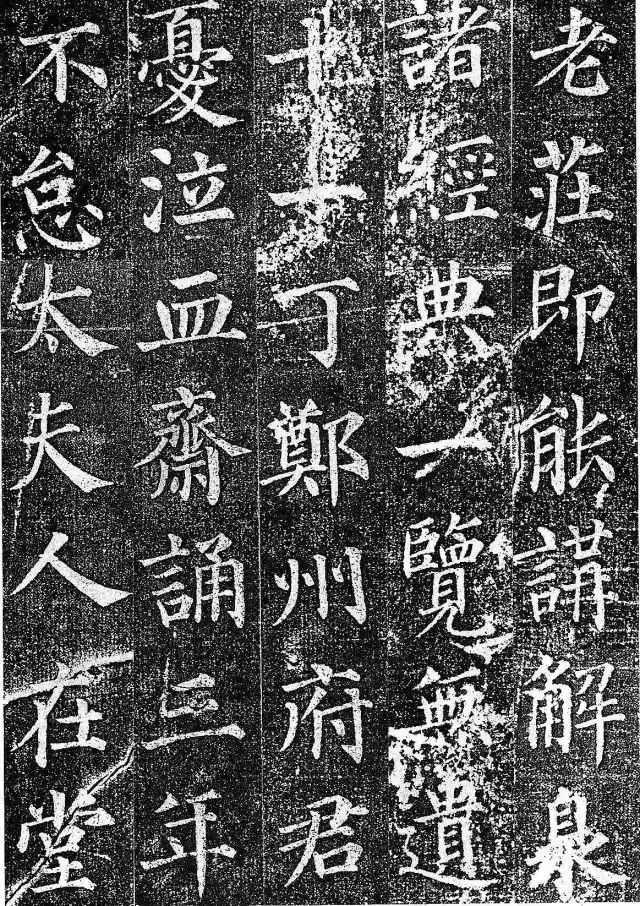 老莊即能講解臮
諸經典一覽無遺
十丁鄭州府君
憂泣血齋誦三年
不怠太夫人在堂